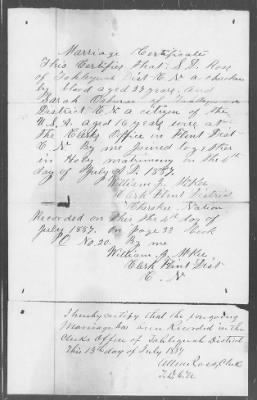 Marriage Certificate
This Certifies that S.D. Ross
of Tahlequah Dist C.N. a cherokee
by blood aged 23 years. and
Sarah Osburn of Tahlequah
District C.N. a citizen of the
U.S.A. aged 16 years were at
the Clerks Office in Flint Dist
C.N. By me joined together
in Holy matrimony on the 4th
day of July A.D. 1887.
William J. McKee
Clerk Flint District
Cherokee Nation
Recorded on this the 4th day of
July 1887. on page 22 Book
C No. 20. By me
William J. McKee
Clerk Flint Dist
C.N.
I hereby certify that the foregoing
Marriage has been Recorded in the
Clerks Office of Tahlequah District
This 13th day of July 1887
Allen Ross, Clerk